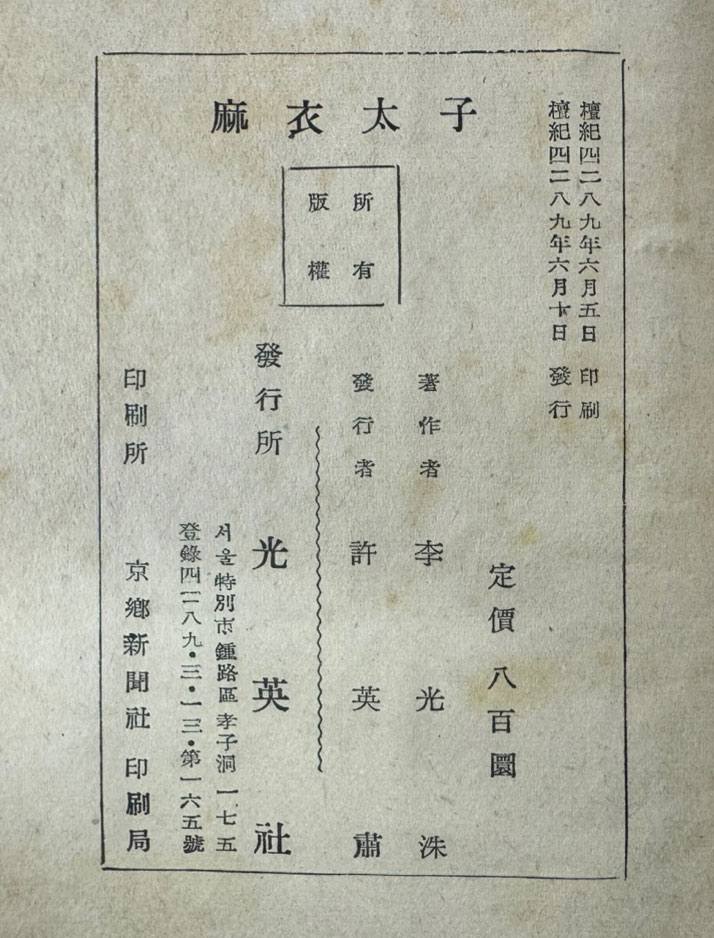 麻衣太子
所有
版權
檀紀四二八九年六月五日 印刷
檀紀四二八九年六月十日 發行
定價八百圜
著作者 李光洙
發行者 許英肅
發行所 光英社
서울特別市鍾路區孝子洞一七五
登錄四二八九•三•一三•第一六五號
印刷所 京鄕新聞社印刷局